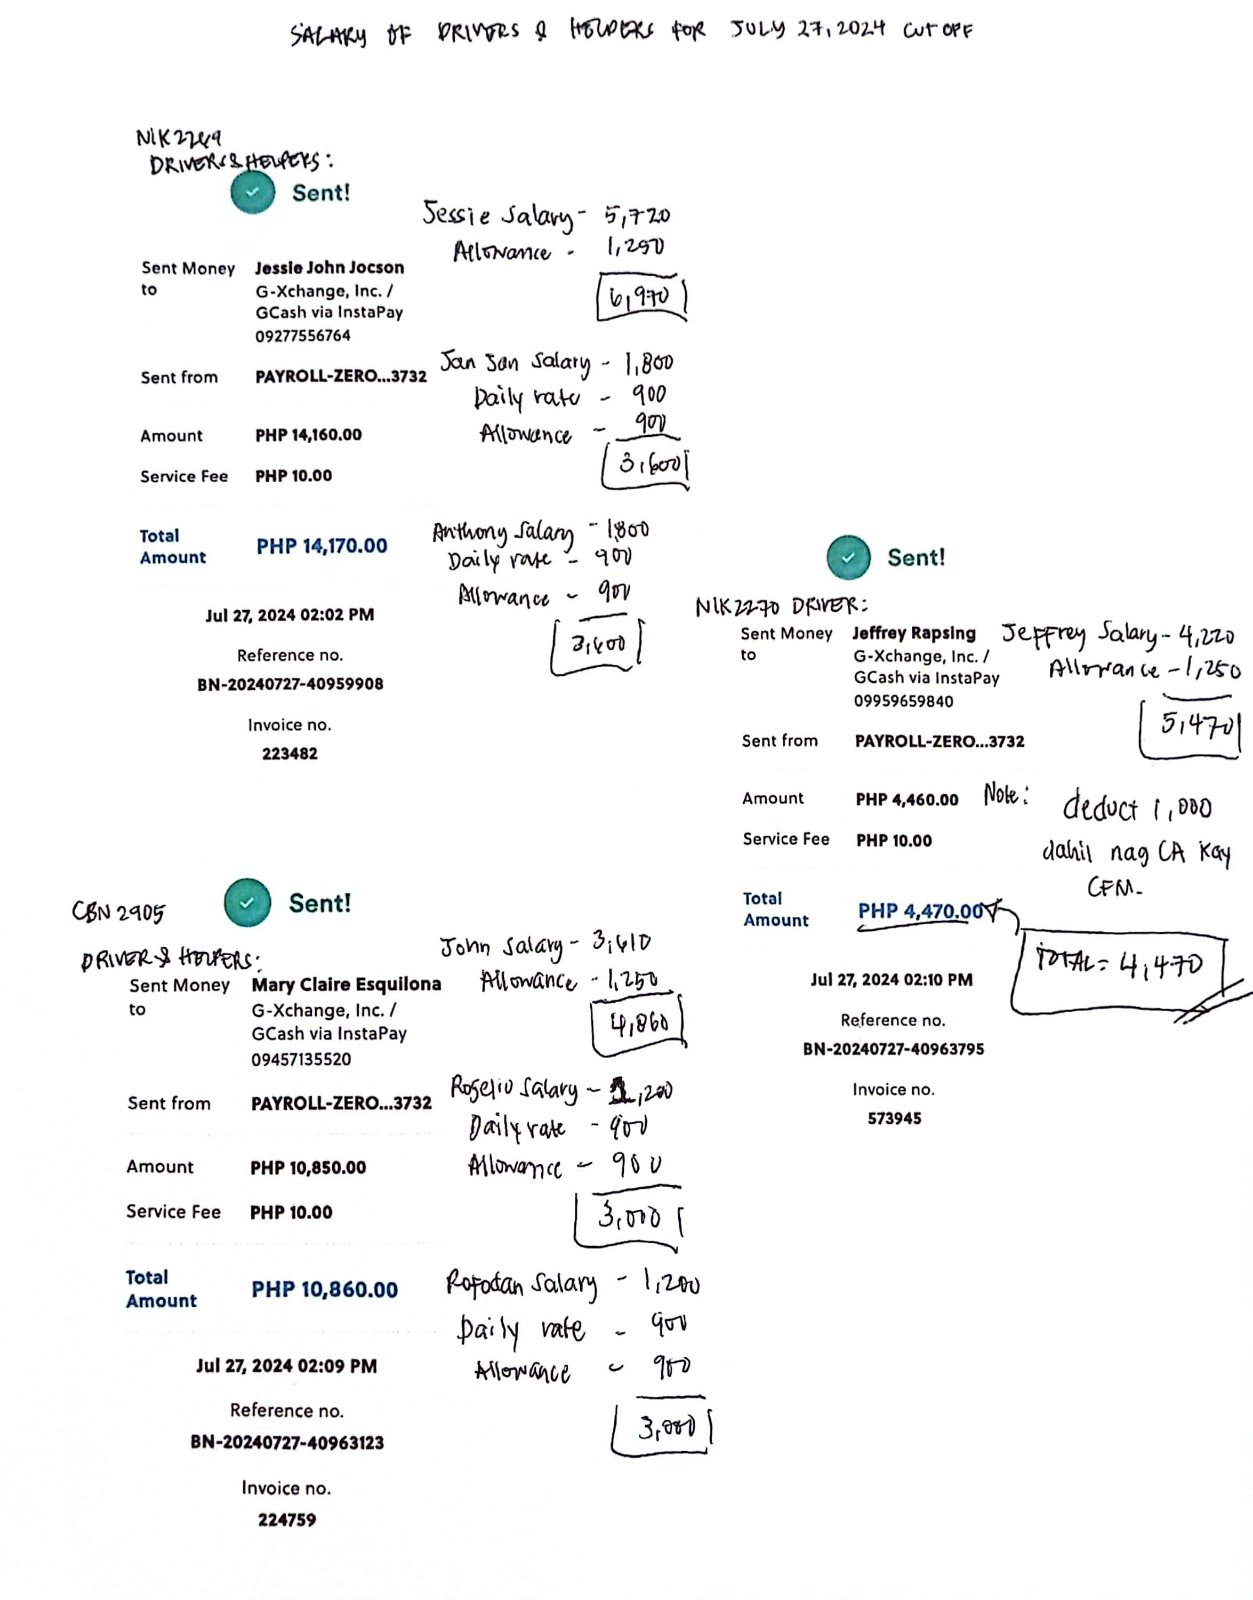 SALARY OF DRIVERS & HELPERS FOR JULY 27, 2024 CUT OFF
NIK2249
DRIVERS & HELPERS:
Sent!
Sent Money to
Jessie John Jocson
G-Xchange, Inc. /
GCash via InstaPay
09277556764
Sent from PAYROLL-ZERO...3732
Amount PHP 14,160.00
Service Fee PHP 10.00
Total Amount PHP 14,170.00
Jul 27, 2024 02:02 PM
Reference no.
BN-20240727-40959908
Invoice no.
223482
Jessie Salary - 5,720
Allowance - 1,250
6,970
Jan Jan Salary - 1,800
Daily rate - 900
Allowance - 900
3,600
Anthony Salary - 1,800
Daily rate - 900
Allowance - 900
3,600
Sent!
NIK2270 DRIVER:
Sent Money to
Jeffrey Rapsing
G-Xchange, Inc. /
GCash via InstaPay
09959659840
Sent from PAYROLL-ZERO...3732
Amount PHP 4,460.00
Service Fee PHP 10.00
Total Amount PHP 4,470.00
Jul 27, 2024 02:10 PM
Reference no.
BN-20240727-40963795
Invoice no.
573945
Jeffrey Salary - 4,220
Allowance - 1,250
5,470
Note: deduct 1,000
dahil nag CA kay
CFM.
TOTAL = 4,470
CBN 2905
DRIVER & HELPERS:
Sent!
Sent Money to
Mary Claire Esquilona
G-Xchange, Inc. /
GCash via InstaPay
09457135520
Sent from PAYROLL-ZERO...3732
Amount PHP 10,850.00
Service Fee PHP 10.00
Total Amount PHP 10,860.00
Jul 27, 2024 02:09 PM
Reference no.
BN-20240727-40963123
Invoice no.
224759
John Salary - 3,610
Allowance - 1,250
4,860
Rogelio Salary - 1,200
Daily rate - 900
Allowance - 900
3,000
Rofodan Salary - 1,200
Daily rate - 900
Allowance - 900
3,000